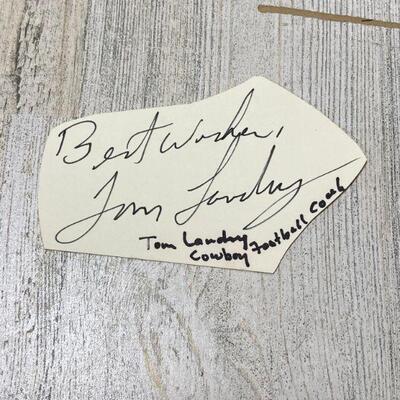 Best Wishes,
Tom Landry
Tom Landry
Cowboy Football Coach